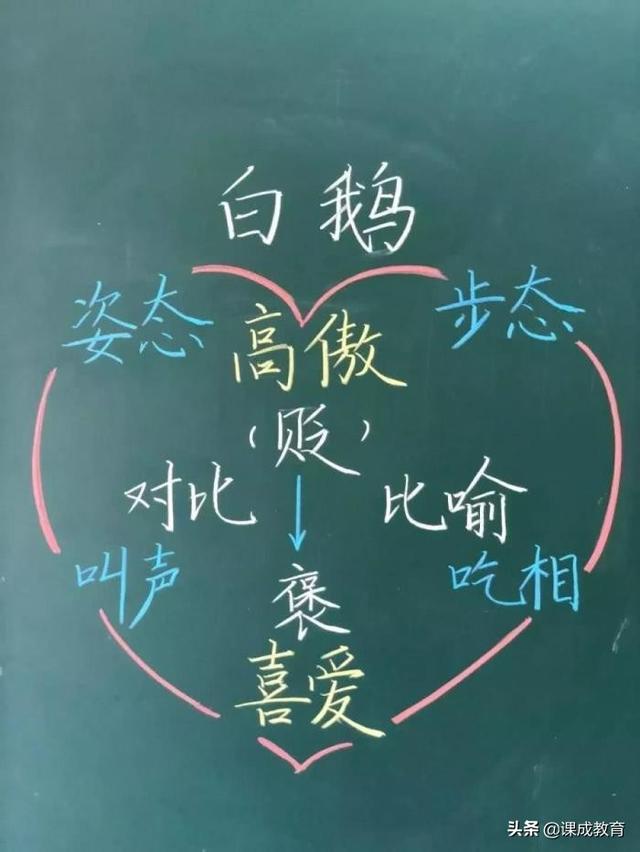 白鹅
姿态 步态
高傲
（贬）
对比 比喻
叫声 吃相
褒
喜爱
头条 @课成教育